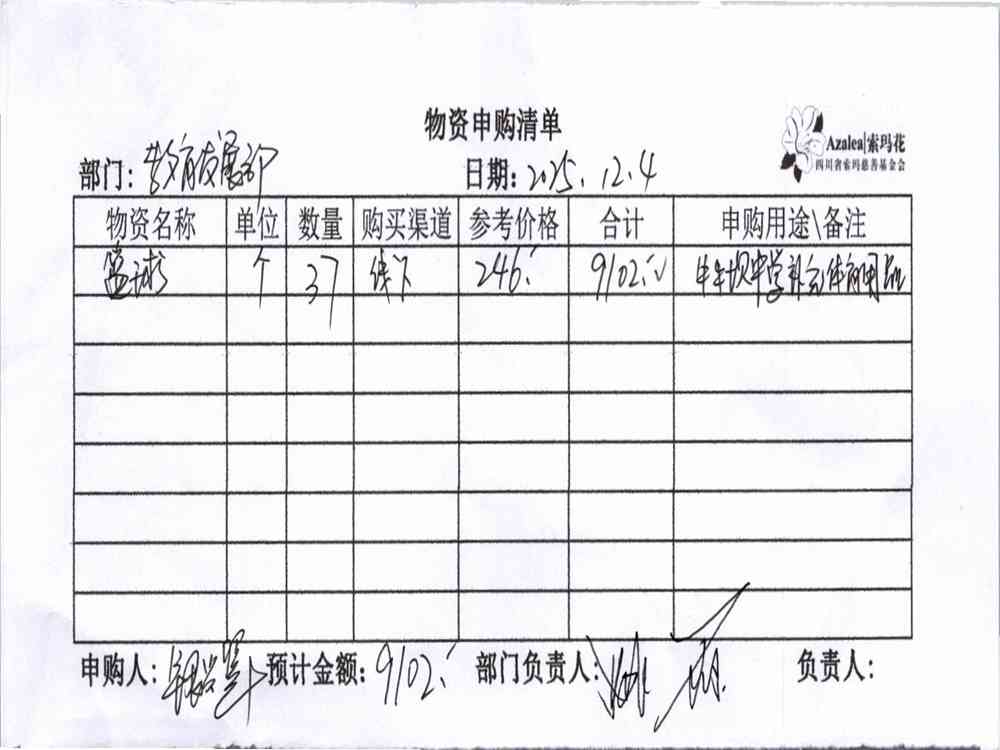 物资申购清单
Azalea|索玛花
四川省索玛慈善基金会
部门：教育发展部 日期：2025.12.4
物资名称 单位 数量 购买渠道 参考价格 合计 申购用途\备注
篮球 个 37 线下 246 9102 牛牛坝中学补充体育用品
申购人： 预计金额：9102 部门负责人： 负责人：